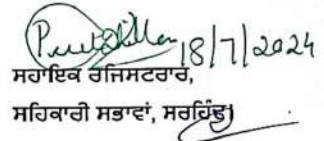 18/7/2024
ਸਹਾਇਕ ਰਜਿਸਟਰਾਰ,
ਸਹਿਕਾਰੀ ਸਭਾਵਾਂ, ਸਰਹਿੰਦ।